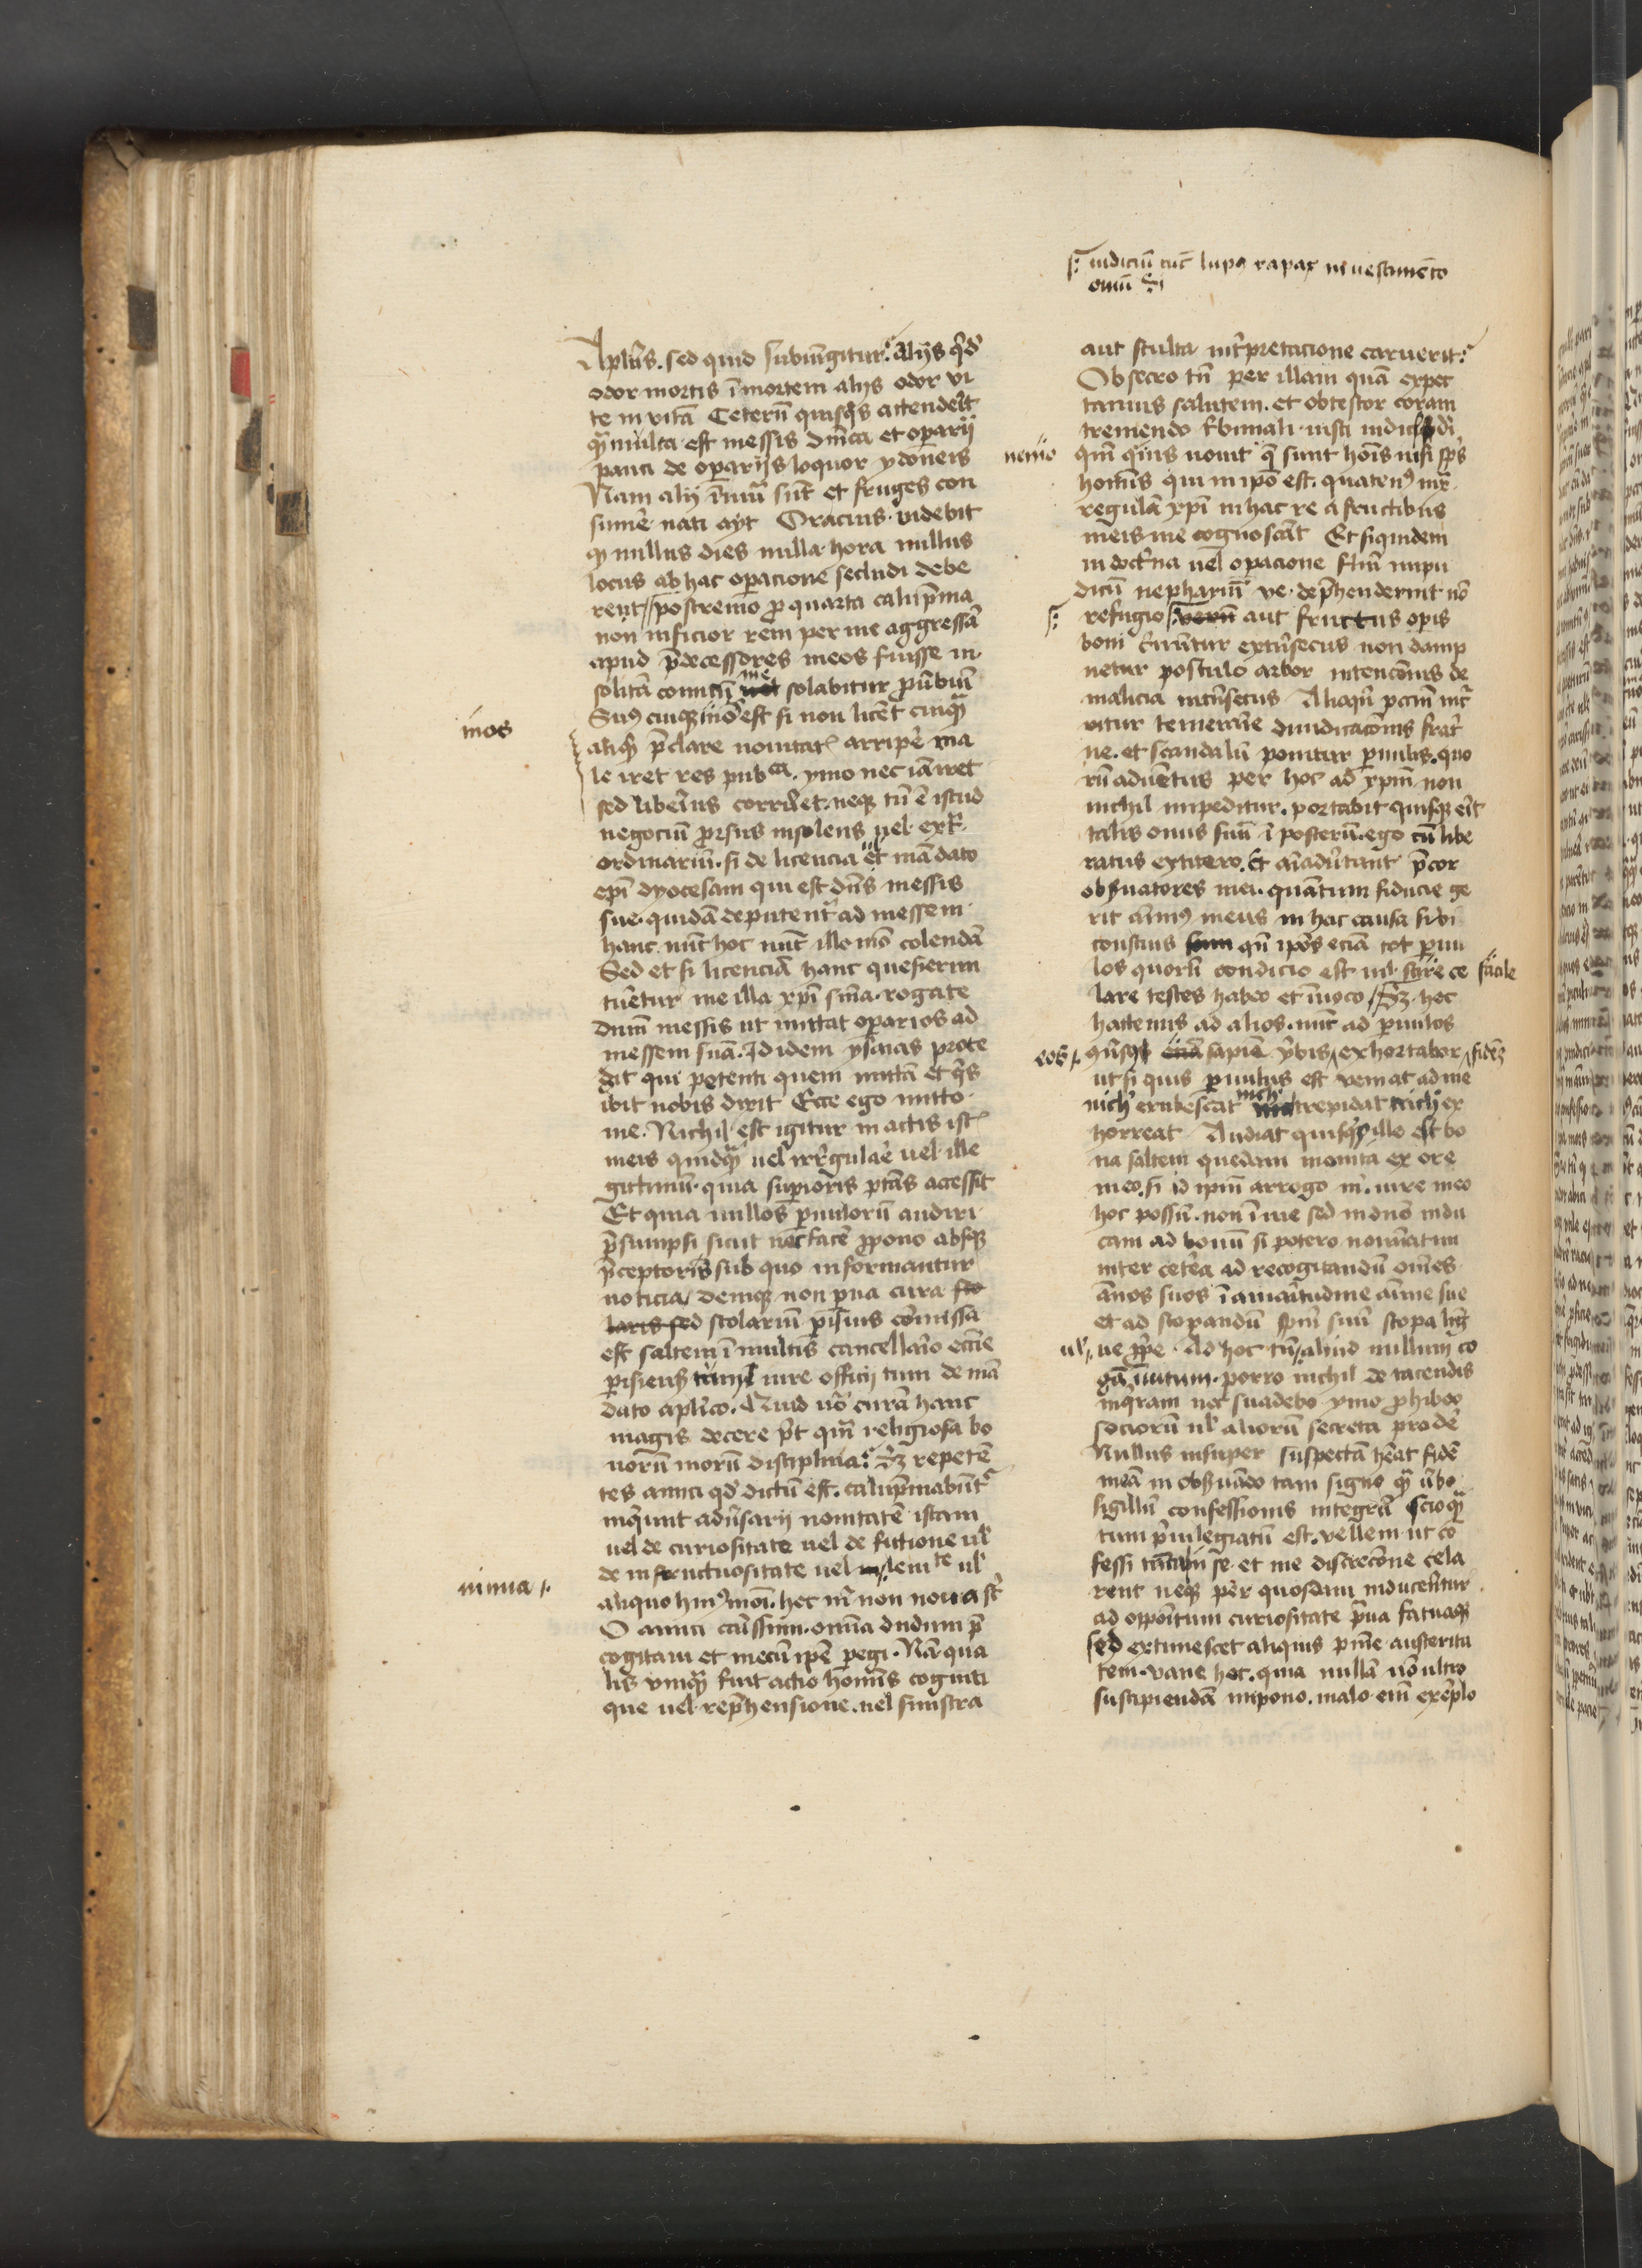 iudiciū tūc lupꝯ rapax in uestimēto
ouiū
Aplūs. sed quid subiūgitur? Alijs qͥdē
odor mortis ī mortem alijs odor vi
te in vitā Ceterū quisqͥs attenderit
qͣ multa est messis dn̄ica et operarij
pauci de operarijs loquor ydoneis
Nam alij īnumͥ sūt et fruges con
sumē nati ayt Oracius. videbit
qꝫ nullus dies nulla hora nullus
locus ab hac operacione secludi debe
rent postremo pro quarta calūpnia
non inficior rem per me aggressā
apud p̄decessores meos fuisse in
solitā conuiciū me solabitur prouerbiū
Suꝯ cuique mos est si non licet cuiqͣ
mos
aliqͥd p̄clare nouitatis arripe ma
le iret res pubca. ymo nec iā iret
sed liberius corruet. neqꝫ tn̄ ē istud
negociū prorsus insolens uel ext͛
ordinariū. si de licencia et mādato
epī dyocesani qui est dn̄s messis
sue. quidā deputent̄ ad messem
hanc nūc hoc nūc illo mō colendā
Sed et si licenciā hanc quesierim
tuetur me illa xpī sn̄ia. rogate
dn̄m messis ut mittat operarios ad
messem suā. Id idem ysaias prote
dit qui petenti quem mittā et qͥs
ibit nobis dixit Ecce ego mitto
me. Nichil est igitur in actis istis
meis quidqͣ uel irregulare uel ille
gittimū. quia superioris ptās accessit
Et quia nullos paruulorū audiri
p̄sumpsi sicut nec facē propono absqꝫ
p̄ceptoris sub quo informantur
noticia denique non parua cura sco
laris sed scolarium p̄sius cōmissa
est saltem ī multis cancellario eccīe
parisiens tum iure officij tum de mā
dato aplico. Quid uō curā hanc
magis decere pōt qm̄ religiosa bo
norū morū disciplina? Sꝫ repetē
tes amici qd dictū est. calūpniabūt͛
inqͥunt aduersarij nouitatē istam
uel de curiositate uel de fictione uͥl
de infructuositate uel leuitate uͥl
nimia
aliquo huiꝯmōi. hec mͥ non noua sūt
O amici carissimi. omnia dudum p̄
cogitaui et mecū ipse peregi. Nā qua
lis vnqͣ fuit actio hominis cogniti
que uel rep̄hensione. uel sinistra
aut stulta interpretacione caruerit?
Obsecro tn̄ per illam quā expec
tamus salutem. et obtestor coram
tremendo tribunali iusti iudicis di
nemo qm̄ quis nouit que sunt hois nisi sp̄s
hominis qui in ipō est. quatenꝯ iux͛
regulā xpī in hac re a fructibus
meis me cognoscāt Et siquidem
in doctͥna uel operacione fn̄m impu
dicū nephariū ve. dep̄henderint nō
refugio verū aut fructus operis
boni cernūtur extrīsecus non damp
netur postulo arbor intencōnis de
malicia intrīsecus Alioqͥn peccm̄ inc͛
ritur temerarie diiudicacōnis frat͛
ne. et scandalū ponitur paruulis. quo
rū aduentus per hoc ad xpm̄ non
nichil impeditur. portabit quisqꝫ erit
talis onus suū ī posterū. ego tū libe
ratus extitero. Et aīaduertant p̄cor
obseruatores mei. quantum fiducie ge
rit animꝯ meus in hac causa sibi
conscius qn̄ ipōs eciā tot paruu
los quorū condicio est nil scire ce facile
lare testes habeo et īuoco Sꝫ hec
hactenus ad alios. nūc ad paruulos
eos sapiēn verbis exhortabor fidēs
ut si quis paruulus est veniat ad me
nichͥ erubescat nichͥ trepidat nichͥ ex
horreat Audiat quisqͥs ille est bo
na saltem quedam monita ex ore
meo. si id ipm̄ arrogo mͥ. iure meo
hoc possū. non ī me sed in dn̄o indu
cam ad bonū si potero nominatim
inter cetera ad recogitandū om̄es
ānos suos ī amaritudine aīme sue
et ad scopandū spm̄ suū scopa lig͛
ul ue proprie. Ad hoc tn̄ aliud nullum co
gā inuitum. porro nichil de tacendis
inqͥram nec suadebo ymo prohibeo
sociorū ul aliorū secreta prodē
Nullus insuper suspectā hēat fidē
meā in obseruādo tam signo qͣ ūbo
sigillū confessionis integrū scio qͣ
tum p̄uilegiatū est. vellem ut co
fessi tantū se et me discrecōne cela
rent neqꝫ per quosdam inducentur
ad oppositum curiositate praua fatuaqꝫ
sed extimescet aliquis p me austerita
tem. vane hoc. quia nullā nō ultro
suscipiendā impono. malo em̄ exemplo